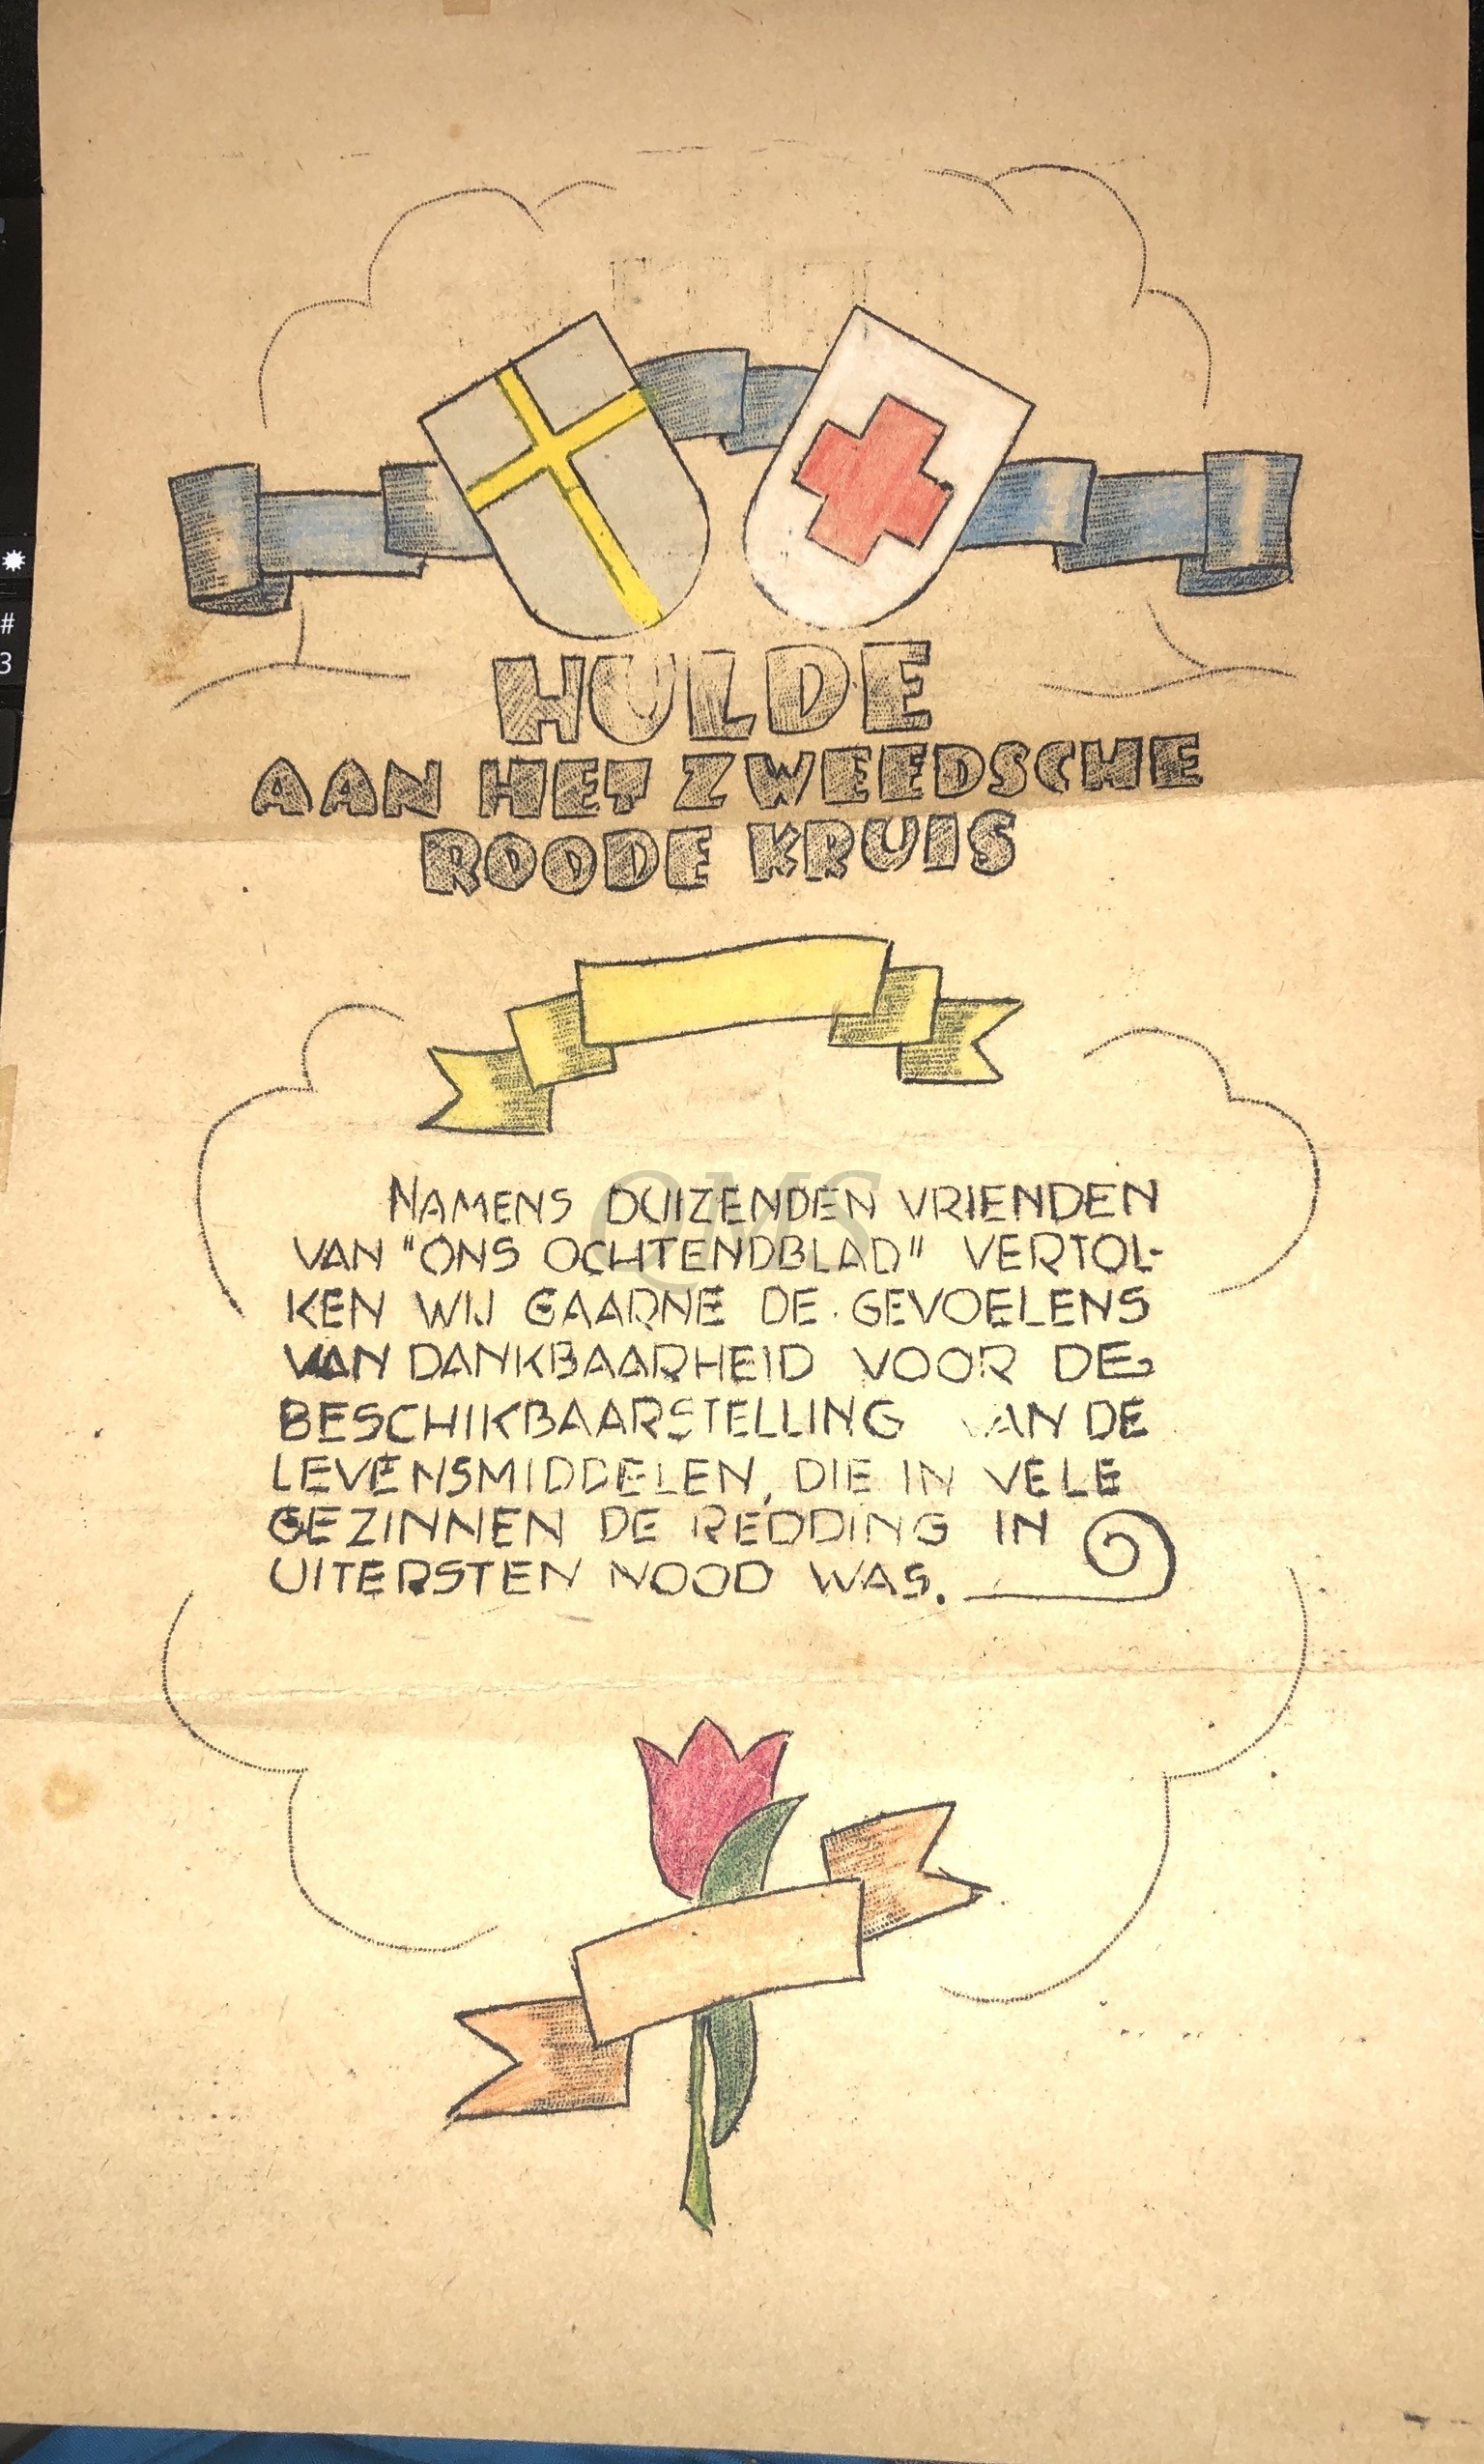 HULDE
AAN HET ZWEEDSCHE
ROODE KRUIS
NAMENS DUIZENDEN VRIENDEN
VAN "ONS OCHTENDBLAD" VERTOL-
KEN WIJ GAARNE DE GEVOELENS
VAN DANKBAARHEID VOOR DE
BESCHIKBAARSTELLING VAN DE
LEVENSMIDDELEN, DIE IN VELE
GEZINNEN DE REDDING IN
UITERSTEN NOOD WAS.
QMS
#
3